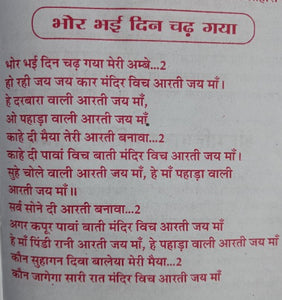 भोर भई दिन चढ़ गया
भोर भई दिन चढ़ गया मेरी अम्बे...2
हो रही जय जय कार मंदिर विच आरती जय माँ।
हे दरबारा वाली आरती जय माँ,
ओ पहाड़ा वाली आरती जय माँ
काहे दी मैया तेरी आरती बनावा...2
काहे दी पावां विच बाती मंदिर विच आरती जय माँ।
सुहे चोले वाली आरती जय माँ, हे माँ पहाड़ा वाली
आरती जय माँ॥
सर्व सोने दी आरती बनावा...2
अगर कपूर पावां बाती मंदिर विच आरती जय माँ
हे माँ पिंडी रानी आरती जय माँ, हे पहाड़ा वाली आरती जय माँ
कौन सुहागन दिवा बालेया मेरी मैया...2
कौन जागेगा सारी रात मंदिर विच आरती जय माँ